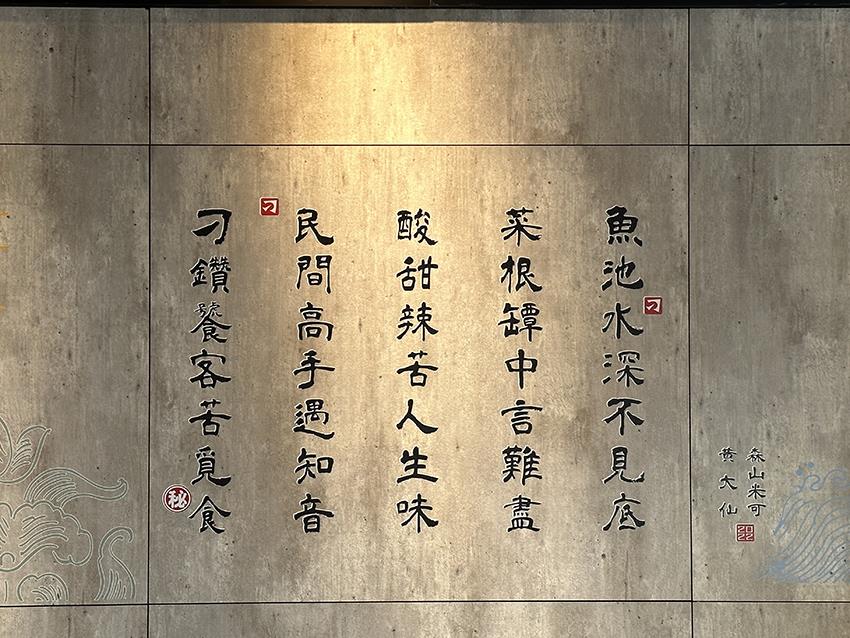 森山米可
黃大仙
2022
魚池水深不見底
刁
菜根罈中言難盡
酸甜辣苦人生味
民間高手遇知音
刁
刁鑽饕客苦覓食
秘